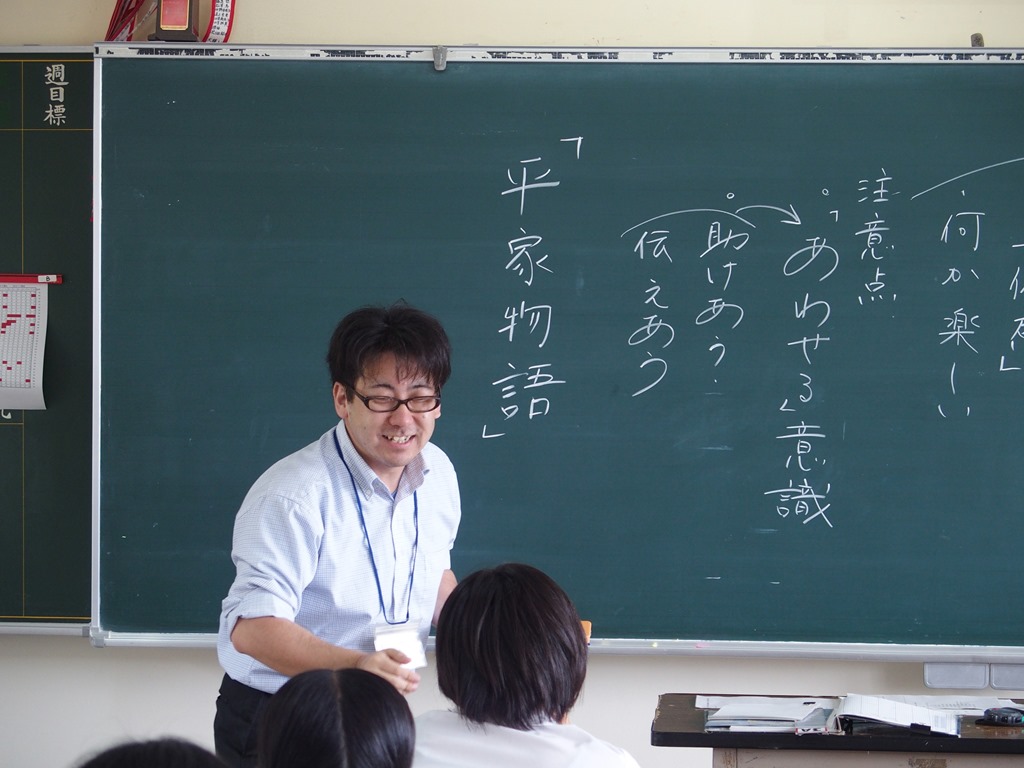 ・何か楽しい
注意点
。「あわせる」意識
。助けあう
伝えあう
「平家物語」
週目標